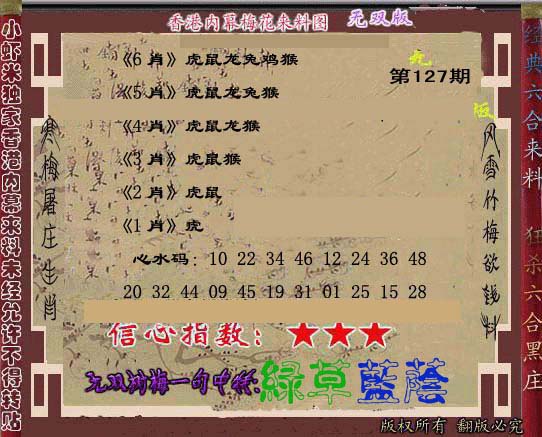 香港内幕梅花来料图 无双版
九
版
第127期
《6 肖》虎鼠龙兔鸡猴
《5 肖》虎鼠龙兔猴
《4 肖》虎鼠龙猴
《3 肖》虎鼠猴
《2 肖》虎鼠
《1 肖》虎
心水码：10 22 34 46 12 24 36 48
20 32 44 09 45 19 31 01 25 15 28
信心指数：★★★
一句中特:綠草藍蔭
版权所有 翻版必究
小虾米独家香港内幕来料未经允许不得转贴
寒梅屠庄生肖
风雪竹梅欲钱料
经典六合来料 狂杀六合黑庄